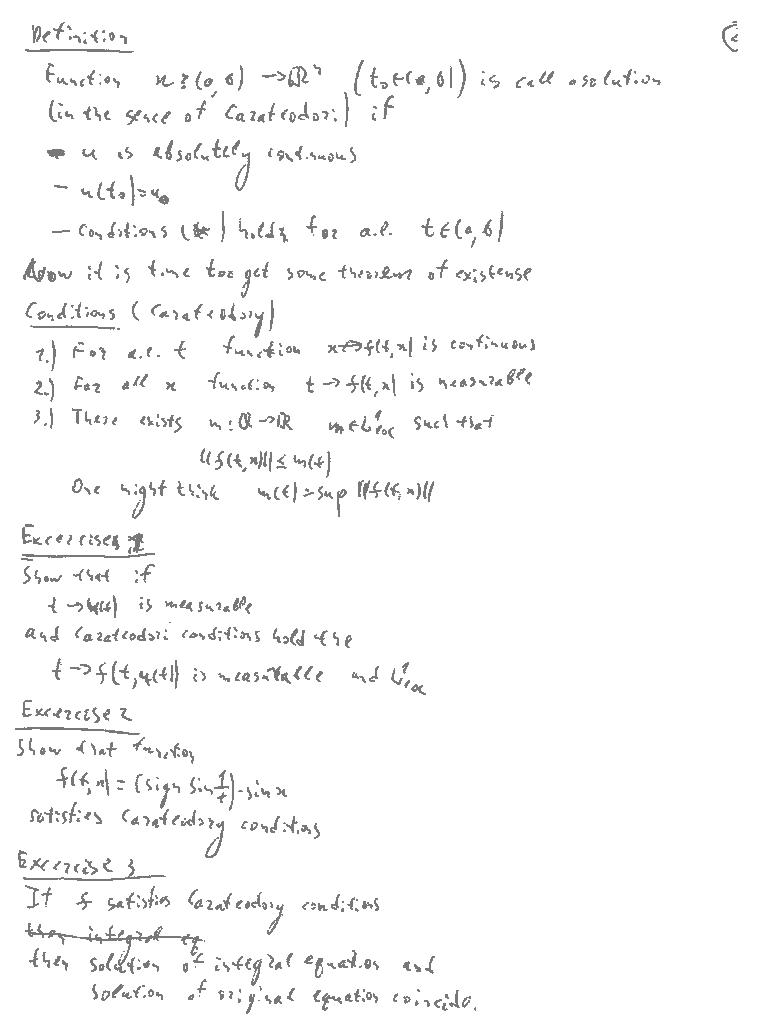 Definition
Function x : (a, b) → ℝⁿ (t₀ ∈ (a, b)) is call a solution
(in the sence of Carateodori) if
- x is absolutely continuous
- x(t₀) = x₀
- Conditions (*) holds for a.e. t ∈ (a, b)
Now it is time too get some theorems of existense
Conditions (Carateodory)
1.) For a.e. t function x → f(t, x) is continuous
2.) For all x function t → f(t, x) is measurable
3.) There exists m : ℝ → ℝ m ∈ L¹loc such that
||f(t, x)|| ≤ m(t)
One might think m(t) = sup ||f(t, x)||
Excercises 1
Show that if
t → x(t) is measurable
and Carateodori conditions hold the
t → f(t, x(t)) is measurable and L¹loc
Excercise 2
Show that function
f(t, x) = (sign sin 1/t) · sin x
satisfies Carateodory conditions
Excercise 3
If f satisfies Carateodory conditions
then integral eq
then solution of integral equation and
solution of original equation coincide.